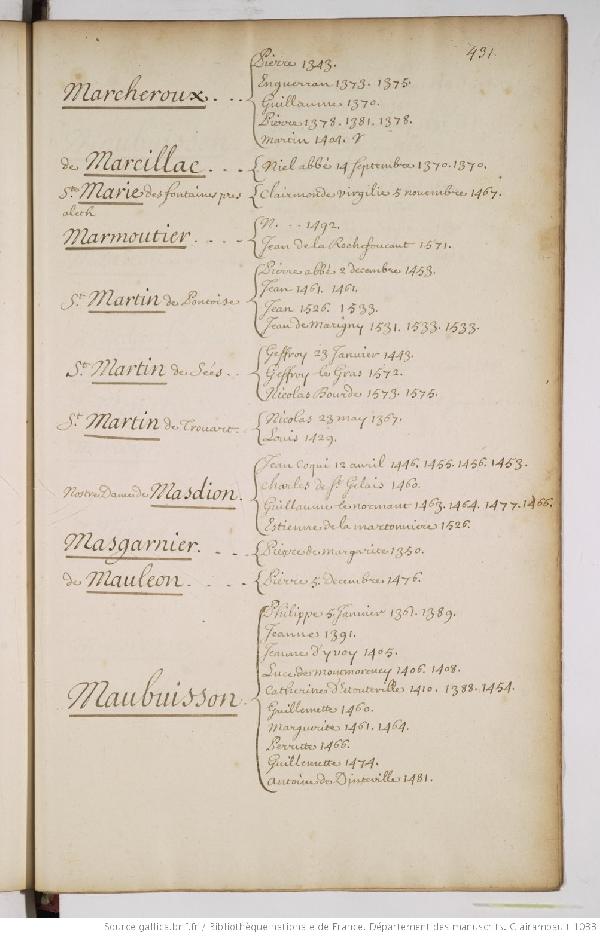 431.
Marcheroux. . . .
Pierre 1343.
Enguerran 1373. 1375.
Guillaume 1370.
Pierre 1378. 1381. 1378.
Martin 1404.
de Marcillac. . . .
Niel abbé 14 septembre 1370. 1370.
Ste Marie des fontaines pres aleth
Clairmonde virgilie 5 novembre 1467.
Marmoutier. . . .
N. . . . 1492.
Jean de la Rochefoucaut 1571.
St. Martin de Pontoise
Pierre abbé 2 decembre 1453.
Jean 1461. 1461.
Jean 1526. 1533.
Jean de Marigny 1531. 1533. 1533.
St. Martin de Sées. .
Geffroy 23 Janvier 1443.
Geffroy le Gras 1572.
Nicolas Bourde 1573. 1575.
St. Martin de Trouart.
Nicolas 23 may 1367.
Louis 1429.
Nostre Dame de Masdion.
Jean Coqui 12 avril 1446. 1455. 1456. 1453.
Charles de St. Gelais 1460.
Guillaume le normant 1463. 1464. 1477. 1466.
Estienne de la martonniere 1526.
Masgarnier. . . .
Pierre de margarite 1350.
de Mauleon. . . .
Pierre 5. Decembre 1476.
Maubuisson.
Philippe 5 Janvier 1361. 1389.
Jeanne 1391.
Jeanne d'yvoy 1405.
Luce de monmorency 1406. 1408.
Catherine d'Estouteville 1410. 1388. 1454.
Guillemette 1460.
Marguerite 1461. 1464.
Perrette 1466.
Guillemette 1474.
Antoine de Dinteville 1481.
Source gallica.bnf.fr / Bibliothèque nationale de France. Département des manuscrits. Clairambault 1033